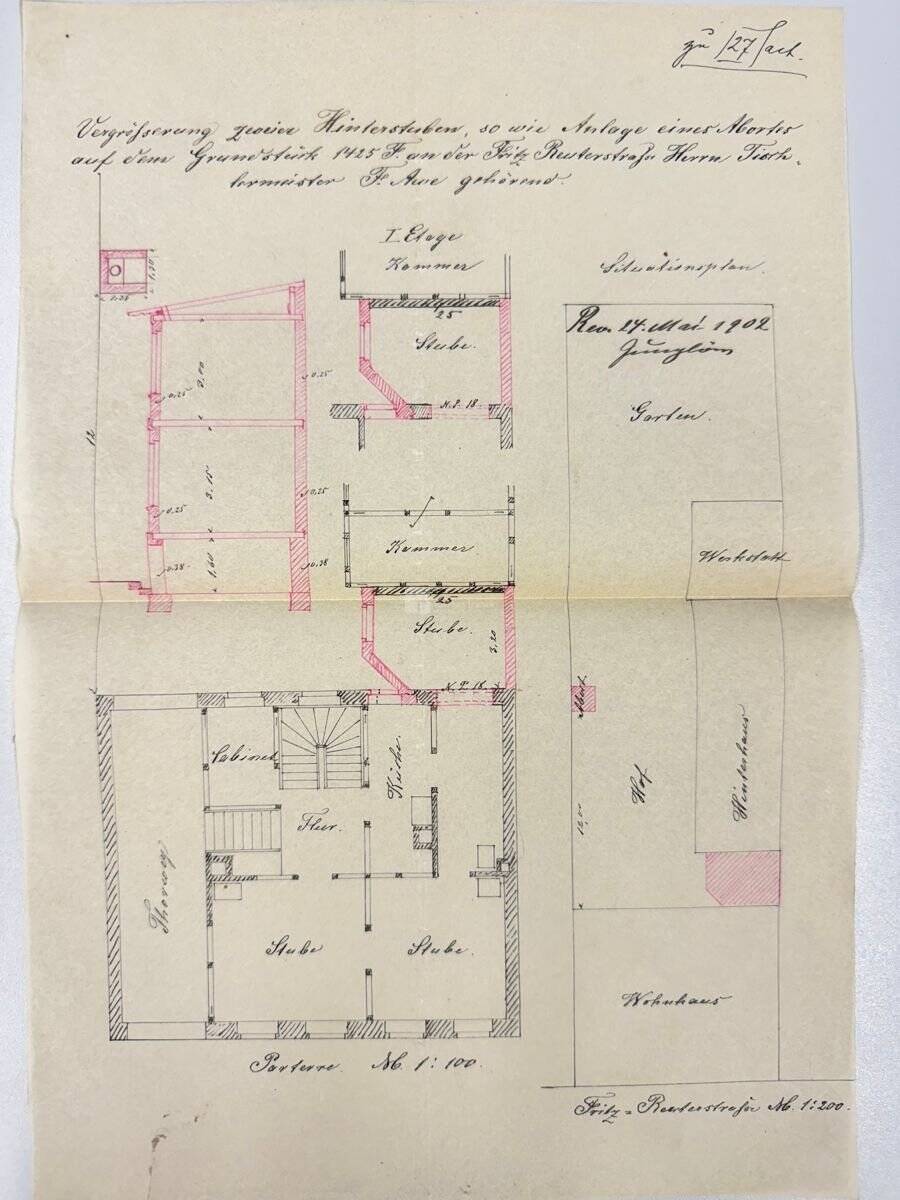 zu 127/act.
Vergrösserung zweier Hinterstuben, so wie Anlage eines Abortes
auf dem Grundstück 1425 F. an der Fritz Reuterstraße Herrn Tisch-
lermeister F. Awe gehörend.
I. Etage
Kammer
Situationsplan.
Rev. 24. Mai 1902
25
Stube.
N. P. 18
Garten.
12
3,00
0,25
0,25
3,15
0,25
0,25
1,60
0,38
0,38
Kammer
25
Stube.
3,20
N. P. 18
Werkstatt
Abort.
Hof
Hinterhaus
12,00
Cabinet
Küche.
Flur.
Thorweg
Stube
Stube.
Wohnhaus
Parterre. M. 1:100.
Fritz-Reuterstraße M. 1:200.